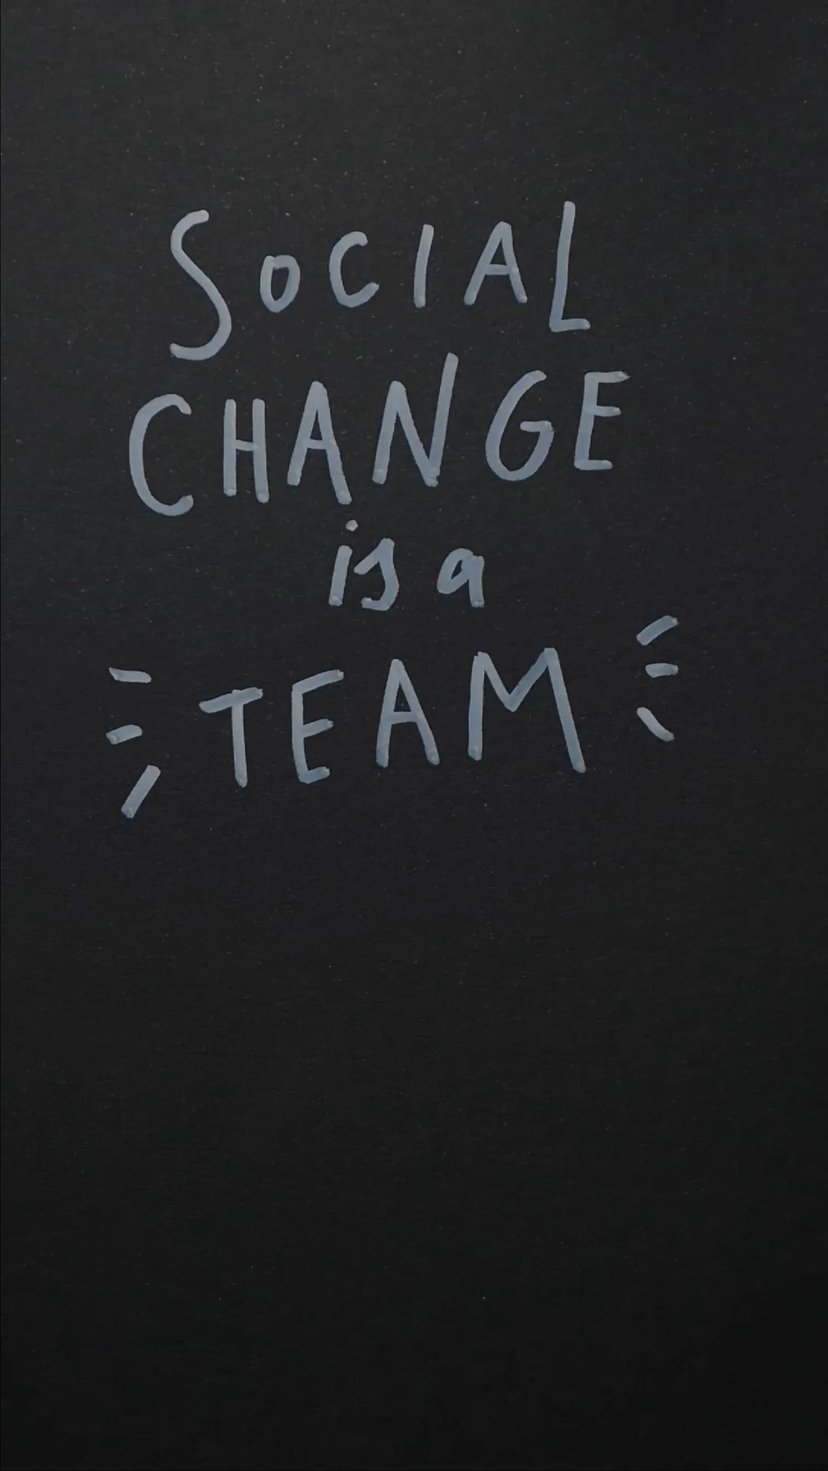 SOCIAL
CHANGE
is a
TEAM